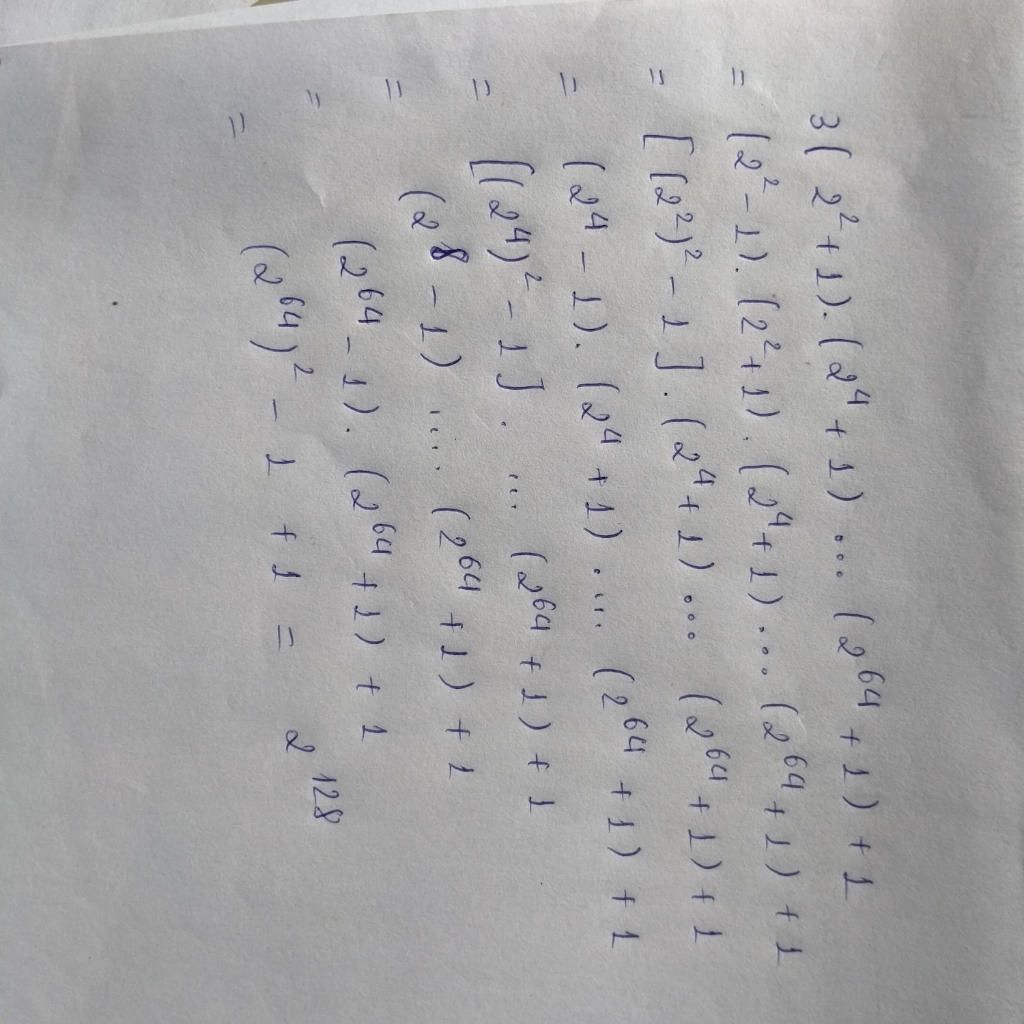 3( 2² + 1).(2⁴ + 1) ... (2⁶⁴ + 1) + 1
= (2² - 1).(2² + 1).(2⁴ + 1) ... (2⁶⁴ + 1) + 1
= [(2²)² - 1].(2⁴ + 1) ... (2⁶⁴ + 1) + 1
= (2⁴ - 1).(2⁴ + 1) .... (2⁶⁴ + 1) + 1
= [(2⁴)² - 1]. ... (2⁶⁴ + 1) + 1
= (2⁸ - 1) .... (2⁶⁴ + 1) + 1
= (2⁶⁴ - 1).(2⁶⁴ + 1) + 1
= (2⁶⁴)² - 1 + 1 = 2¹²⁸